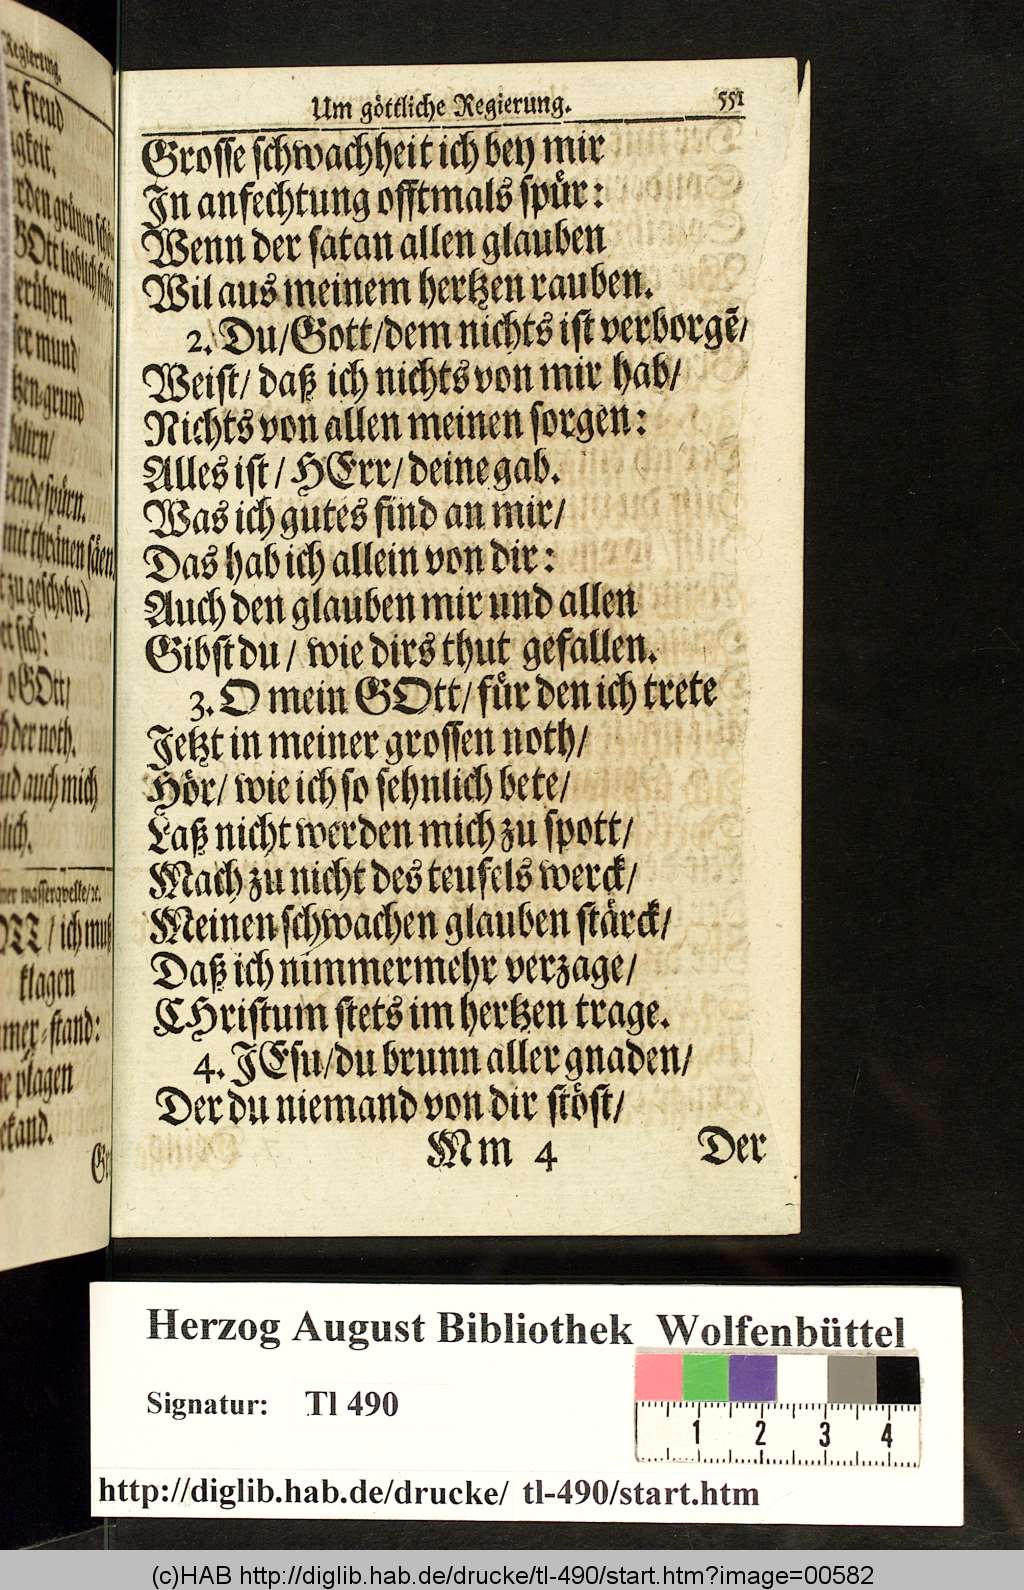 Regierung.
freud
grünen
GOtt lieblich
mund
grund
spüren.
mit thränen säen
zu geschehn)
sich:
o GOtt/
der noth.
auch mich
wasserqvelle/ꝛc.
/ ich muß
klagen
stand:
plagen
Um göttliche Regierung. 551
Grosse schwachheit ich bey mir
In anfechtung offtmals spür:
Wenn der satan allen glauben
Wil aus meinem hertzen rauben.
2. Du/Gott/dem nichts ist verborgē/
Weist/ daß ich nichts von mir hab/
Nichts von allen meinen sorgen:
Alles ist/ HErr/ deine gab.
Was ich gutes find an mir/
Das hab ich allein von dir:
Auch den glauben mir und allen
Gibst du/ wie dirs thut gefallen.
3. O mein GOtt/ für den ich trete
Jetzt in meiner grossen noth/
Hör/ wie ich so sehnlich bete/
Laß nicht werden mich zu spott/
Mach zu nicht des teufels werck/
Meinen schwachen glauben stärck/
Daß ich nimmermehr verzage/
CHristum stets im hertzen trage.
4. JEsu/du brunn aller gnaden/
Der du niemand von dir stöst/
Mm 4 Der
Herzog August Bibliothek Wolfenbüttel
Signatur: Tl 490
1 2 3 4
http://diglib.hab.de/drucke/ tl-490/start.htm
(c)HAB http://diglib.hab.de/drucke/tl-490/start.htm?image=00582